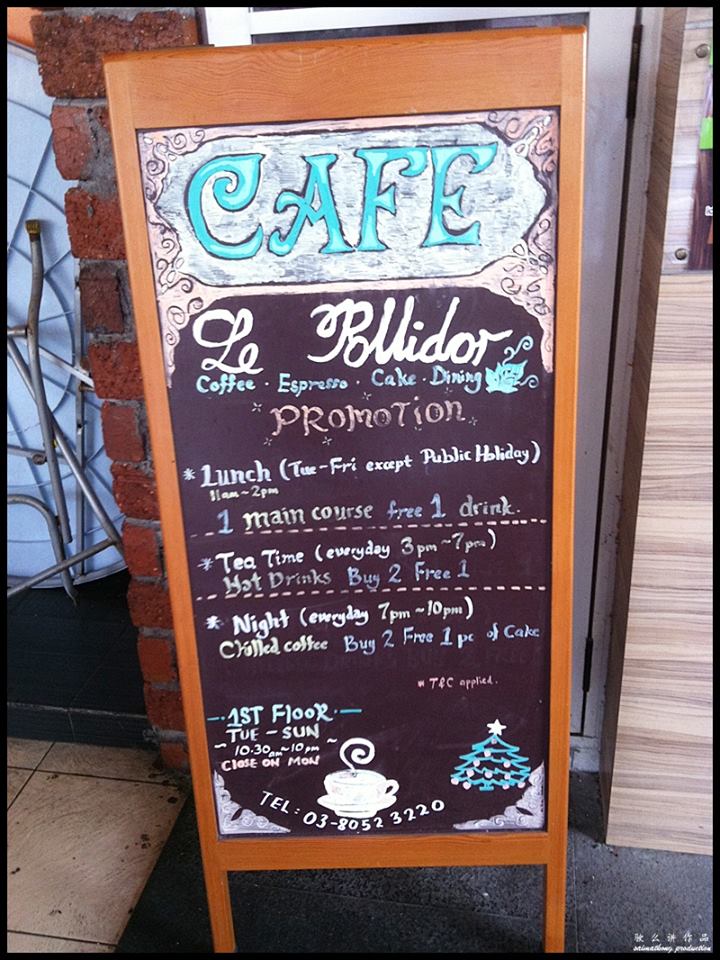 CAFE
Le Pollidor
Coffee · Espresso · Cake · Dining
PROMOTION
* Lunch (Tue-Fri except Public Holiday)
11am~2pm
1 main course free 1 drink.
* Tea Time (everyday 3pm~7pm)
Hot Drinks Buy 2 Free 1
* Night (everyday 7pm~10pm)
Chilled coffee Buy 2 Free 1 pc of Cake
* T&C applied.
1ST FlooR
TUE - SUN
~ 10.30am~10pm ~
CLOSE ON MON
TEL: 03-8052 3220
駛么讲作品
saimatkong production